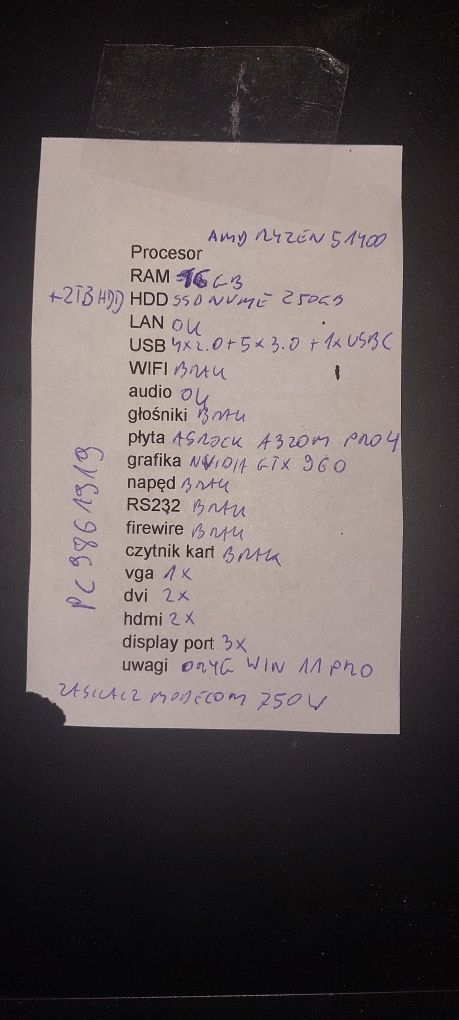 AMD RYZEN 5 1400
Procesor
RAM 16GB
+2TB HDD HDD SSD NVME 250GB
LAN OK
USB 4x2.0+5x3.0+1xUSBC
WIFI BRAK
audio OK
głośniki BRAK
płyta ASROCK A320M PRO4
grafika NVIDIA GTX 960
napęd BRAK
RS232 BRAK
firewire BRAK
czytnik kart BRAK
vga 1x
dvi 2x
hdmi 2x
display port 3x
uwagi ORYG WIN 11 PRO
ZASILACZ MODECOM 750W
PC 9861919